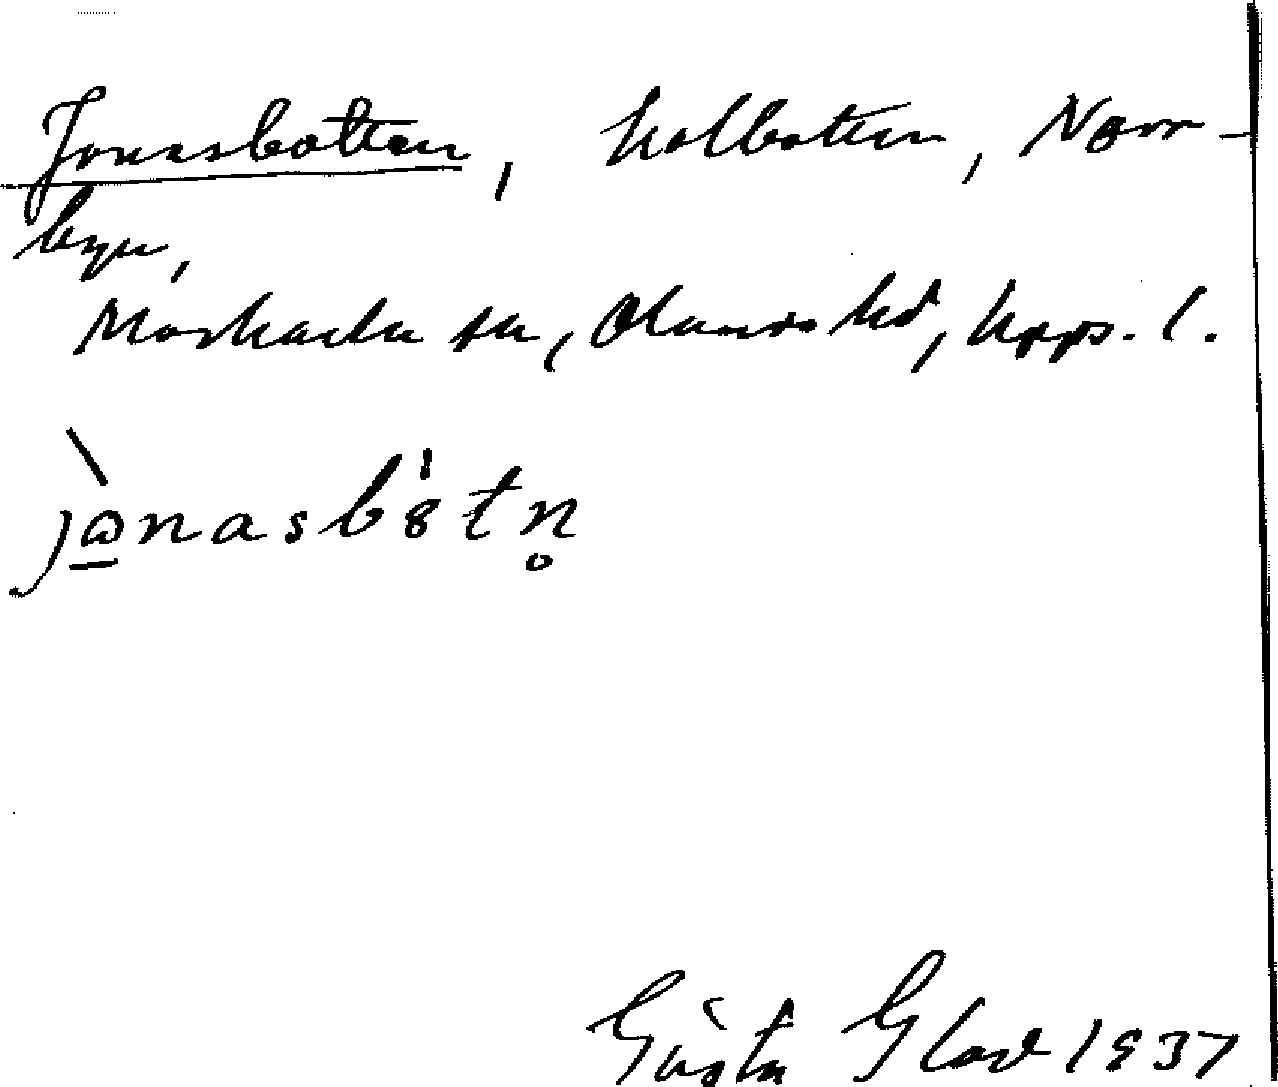 Jonasbotten, kolbotten, Norr-
byn,
Morkarla sn, Olands hd, Upps. l.
jɷ̀nasb8̍tn̥
Gösta Glad 1937